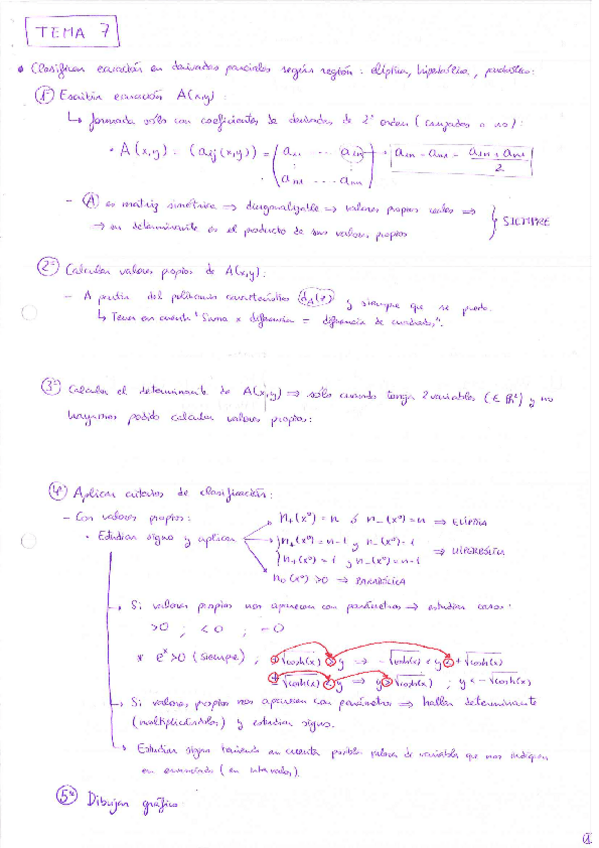 TEMA 7
• Clasificar ecuación en derivadas parciales según región: elíptica, hiperbólica, parabólica:
1º Escribir ecuación A(x,y):
↳ formada sólo con coeficientes de derivadas de 2º orden (cruzadas o no):
• A(x,y) = (aij(x,y)) = (a11 ... a1n
⋮
an1 ... ann) → a1n = an1 = (a1n + an1)/2
- A es matriz simétrica ⇒ diagonalizable ⇒ valores propios reales ⇒
⇒ su determinante es el producto de sus valores propios } SIEMPRE
2º Calcular valores propios de A(x,y):
- A partir del polinomio característico y siempre que se pueda.
↳ Tener en cuenta "Suma x diferencia = diferencia de cuadrados".
3º Calcular el determinante de A(x,y) ⇒ sólo cuando tenga 2 variables (∈ ℝ²) y no
hayamos podido calcular valores propios:
4º Aplicar criterios de clasificación:
- Con valores propios:
n+(x°) = n ó n-(x°) = n ⇒ ELÍPTICA
• Estudiar signo y aplicar
n+(x°) = n-1 y n-(x°) = 1
n+(x°) = 1 y n-(x°) = n-1 ⇒ HIPERBÓLICA
n0(x°) > 0 ⇒ PARABÓLICA
→ Si valores propios nos aparecen con parámetros → estudiar casos:
>0 ; <0 ; =0
* e^x > 0 (siempre) ; + √cosh(x) > y ⇒ -√cosh(x) < y < +√cosh(x)
± √cosh(x) < y ⇒ y > √cosh(x) ; y < -√cosh(x)
→ Si valores propios nos aparecen con parámetros ⇒ hallar determinante
(multiplicándolos) y estudiar signo.
→ Estudiar signo teniendo en cuenta posibles valores de variables que nos indiquen
en enunciado (en intervalos).
5º Dibujar gráfico
1